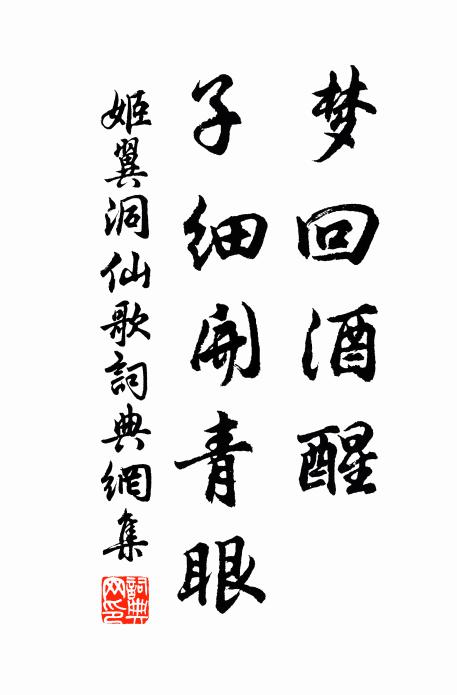 梦回酒醒
子细開青眼
姬翼洞仙歌詞典網集
詞典网印